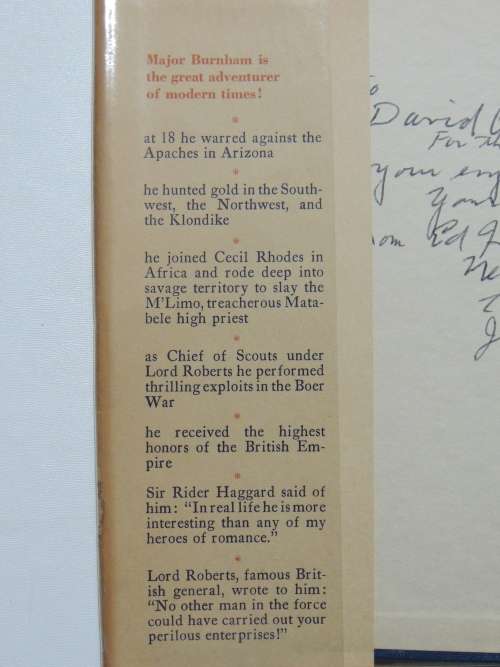 Major Burnham is
the great adventurer
of modern times!
at 18 he warred against the
Apaches in Arizona
he hunted gold in the South-
west, the Northwest, and
the Klondike
he joined Cecil Rhodes in
Africa and rode deep into
savage territory to slay the
M'Limo, treacherous Mata-
bele high priest
as Chief of Scouts under
Lord Roberts he performed
thrilling exploits in the Boer
War
he received the highest
honors of the British Em-
pire
Sir Rider Haggard said of
him: "In real life he is more
interesting than any of my
heroes of romance."
Lord Roberts, famous Brit-
ish general, wrote to him:
"No other man in the force
could have carried out your
perilous enterprises!"
David
For
your
Ed